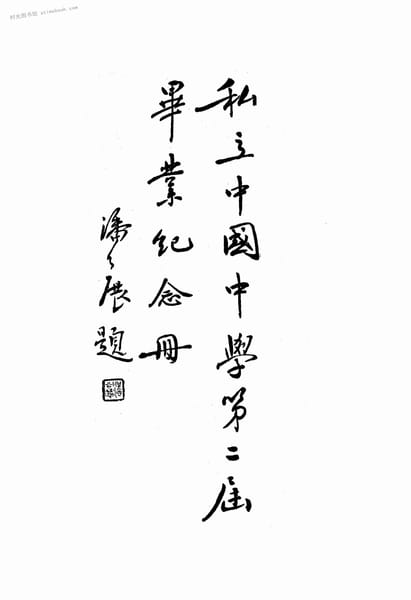 私立中國中學第二屆
畢業紀念冊
潘公展題
时光图书馆 yximebook.com